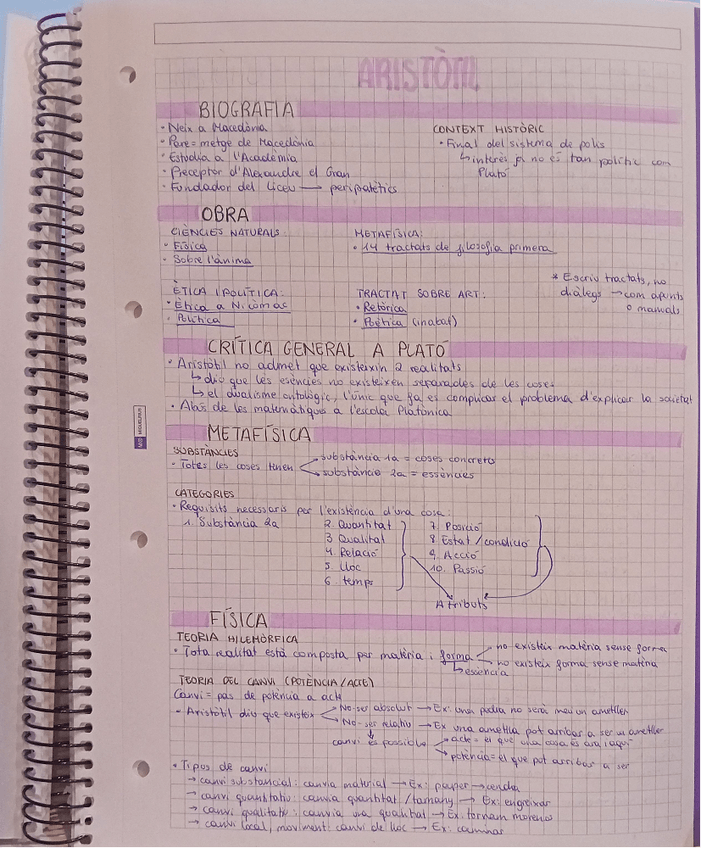 ARISTÒTIL
BIOGRAFIA
· Neix a Macedònia
· Pare = metge de Macedònia
· Estudia a l'Acadèmia
· Preceptor d'Alexandre el Gran
· Fundador del Liceu → peripatètics
CONTEXT HISTÒRIC
· Final del sistema de polis
↳ interès ja no és tan polític com
Plató
OBRA
CIÈNCIES NATURALS:
· Física
· Sobre l'ànima
METAFÍSICA:
· 14 tractats de filosofia primera
ÈTICA I POLÍTICA:
· Ètica a Nicòmac
· Política
TRACTAT SOBRE ART:
· Retòrica
· Poètica (inabat)
* Escriu tractats, no
diàlegs → com apunts
o manuals
CRÍTICA GENERAL A PLATÓ
· Aristòtil no admet que existeixin 2 realitats
↳ diu que les esències no existeixen separades de les coses
↳ el dualisme ontològic, l'únic que fa es complicar el problema d'explicar la societat
· Abús de les matemàtiques a l'escola Platònica
METAFÍSICA
SUBSTÀNCIES
· Totes les coses tenen
substància 1a = coses concretes
substància 2a = essències
CATEGORIES
· Requisits necessaris per l'existència d'una cosa:
1. Substància 2a
2. Quantitat
3 Qualitat
4. Relació
5. Lloc
6. temps
7. Posició
8 Estat / condició
9. Acció
10. Passió
Atributs
FÍSICA
TEORIA HILEMÒRFICA
· Tota realitat està composta per matèria i forma
no existeix matèria sense forma
no existeix forma sense matèria
↳ essència
TEORIA DEL CANVI (POTÈNCIA/ACTE)
Canvi = pas de potència a acte
· Aristòtil diu que existeix
No-ser absolut → Ex: una pedra no serà mai un ametller
No-ser relatiu → Ex una ametlla pot arribar a ser un ametller
canvi és possible
acte = el que una cosa és ara i aquí
potència = el que pot arribar a ser
· Tipus de canvi
→ canvi substancial: canvia material → Ex: paper → cendra
→ canvi quantitatiu: canvia quantitat / tamany → Ex: engreixar
→ canvi qualitatiu: canvia una qualitat → Ex: tornam moreno
→ canvi local, moviment: canvi de lloc → Ex: caminar